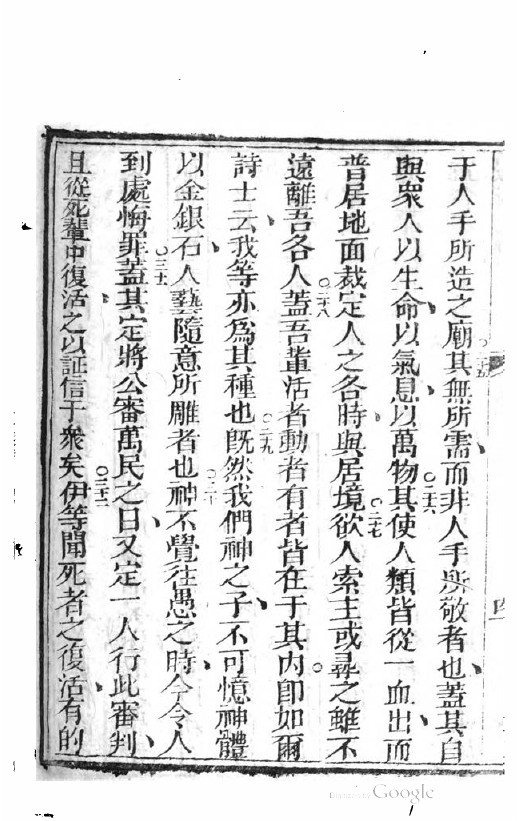 于人手所造之廟其無所需而非人手所敬者也蓋其自
與眾人以生命以氣息以萬物其使人類皆從一血出而
普居地面裁定人之各時與居境欲人索主或尋之雖不
遠離吾各人蓋吾輩活者動者有者皆在于其內即如爾
詩士云我等亦為其種也既然我們神之子不可憶神體
以金銀石人藝隨意所雕者也神不覺往愚之時今令人
到處悔罪蓋其定將公審萬民之日又定一人行此審判
且從死輩中復活之以証信于衆矣伊等聞死者之復活有的
二十五
二十六
二十七
二十八
二十九
三十
三十一
三十二
四
Digitized by Google